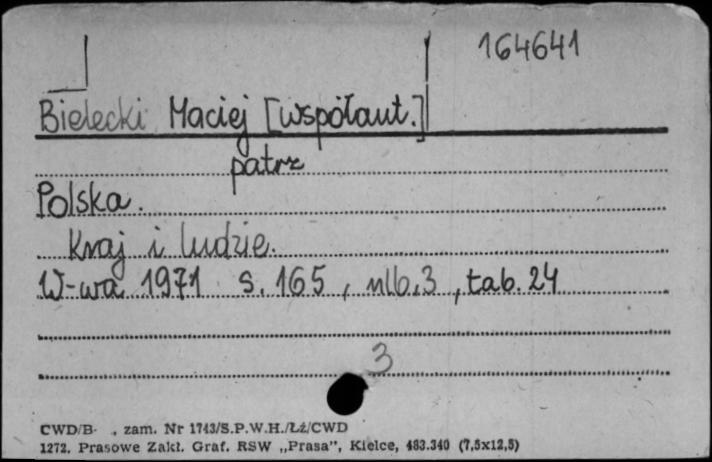 164641
Bielecki Maciej [współaut.]
patrz
Polska.
Kraj i ludzie.
W-wa 1971 s. 165, nlb. 3, tab. 24
3
CWD/B- . zam. Nr 1743/S.P.W.H./Łź/CWD
1272. Prasowe Zakł. Graf. RSW „Prasa", Kielce, 483.340 (7,5x12,5)